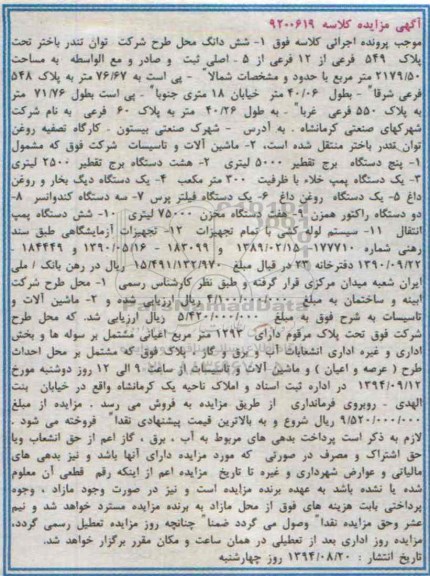 آگهی مزایده کلاسه ۹۲۰۰۶۱۹
موجب پرونده اجرائی کلاسه فوق ۱- شش دانگ محل طرح شرکت توان تندر باختر تحت
پلاک ۵۴۹ فرعی از ۱۲ فرعی از ۵ - اصلی ثبت و صادر و مع الواسطه به مساحت
۲۱۷۹/۵۰ متر مربع با حدود و مشخصات شمالاً - پی است به ۷۶/۶۷ متر به پلاک ۵۴۸
فرعی شرقاً - بطول ۴۰/۰۶ متر خیابان ۱۸ متری جنوباً - پی است بطول ۷۱/۷۶ متر
به پلاک ۵۵۰ فرعی غرباً - به طول ۴۰/۲۶ متر به پلاک ۶۰ فرعی به نام شرکت
شهرکهای صنعتی کرمانشاه . به آدرس - شهرک صنعتی بیستون . کارگاه تصفیه روغن
توان تندر باختر منتقل شده است، ۲- ماشین آلات و تاسیسات شرکت فوق که مشمول
۱- پنج دستگاه برج تقطیر ۵۰۰۰ لیتری ۲- هشت دستگاه برج تقطیر ۲۵۰۰ لیتری
۳- یک دستگاه پمپ خلاء با ظرفیت ۳۰۰ متر مکعب ۴- یک دستگاه دیگ بخار و روغن
داغ ۵- یک دستگاه روغن داغ ۶- یک دستگاه فیلتر پرس ۷- سه دستگاه کندوانسر ۸-
دو دستگاه راکتور همزن ۹- هفت دستگاه مخزن ۷۵۰۰۰ لیتری ۱۰- شش دستگاه پمپ
انتقال ۱۱- سیستم لوله کشی، تمام تجهیزات ۱۲- تجهیزات آزمایشگاهی طبق سند
رهنی شماره ۱۷۷۷۱۰- ۱۳۸۹/۰۲/۱۵ ۱۸۳۰۹۹ - ۱۳۹۰/۰۵/۱۶ و ۱۸۴۴۴۹ -
۱۳۹۰/۰۹/۲۲ دفترخانه ۲۳ در قبال مبلغ ۱۵/۴۹۱/۱۳۲/۹۷۰ ریال در رهن بانک / ملی
ایران شعبه میدان مرکزی قرار گرفته و طبق نظر کارشناس رسمی ۱- محل طرح شرکت
ابنیه و ساختمان به مبلغ ۴/۱۰۰/۰۰۰/۰۰۰ ریال ارزیابی شده و ۲- ماشین آلات و
تاسیسات به شرح فوق به مبلغ ۵/۴۲۰/۰۰۰/۰۰۰ ریال ارزیابی شد. که محل طرح
شرکت فوق تحت پلاک مرقوم دارای متر مربع اعیانی مشتمل بر سوله ها و بخش
اداری و غیره اداری انشعابات آب و برق و گاز ، پلاک فوق که مشتمل بر محل احداث
طرح ( عرصه و اعیان ) و ماشین آلات و تاسیسات از ساعت ۹ الی ۱۲ روز دوشنبه مورخ
۱۳۹۴/۰۹/۱۲ در اداره ثبت اسناد و املاک ناحیه یک کرمانشاه واقع در خیابان بنت
الهدی - روبروی فرمانداری از طریق مزایده به فروش می رسد . مزایده از مبلغ
۹/۵۲۰/۰۰۰/۰۰۰ ریال شروع و به بالاترین قیمت پیشنهادی نقداً فروخته می شود .
لازم به ذکر است پرداخت بدهی های مربوط به آب ، برق ، گاز اعم از حق انشعاب ویا
حق اشتراک و مصرف در صورتی که مورد مزایده دارای آنها باشد و نیز بدهی های
مالیاتی و عوارض شهرداری و غیره تا تاریخ مزایده اعم از اینکه رقم قطعی آن معلوم
شده یا نشده باشد به عهده برنده مزایده است و نیز در صورت وجود مازاد ، وجوه
پرداختی بابت هزینه های فوق از محل مازاد به برنده مزایده مسترد خواهد شد و نیم
عشر وحق مزایده نقداً وصول می گردد ضمناً چنانچه روز مزایده تعطیل رسمی گردد،
مزایده روز اداری بعد از تعطیلی در همان ساعت و مکان مقرر برگزار خواهد شد.
تاریخ انتشار : ۱۳۹۴/۰۸/۲۰ روز چهارشنبه